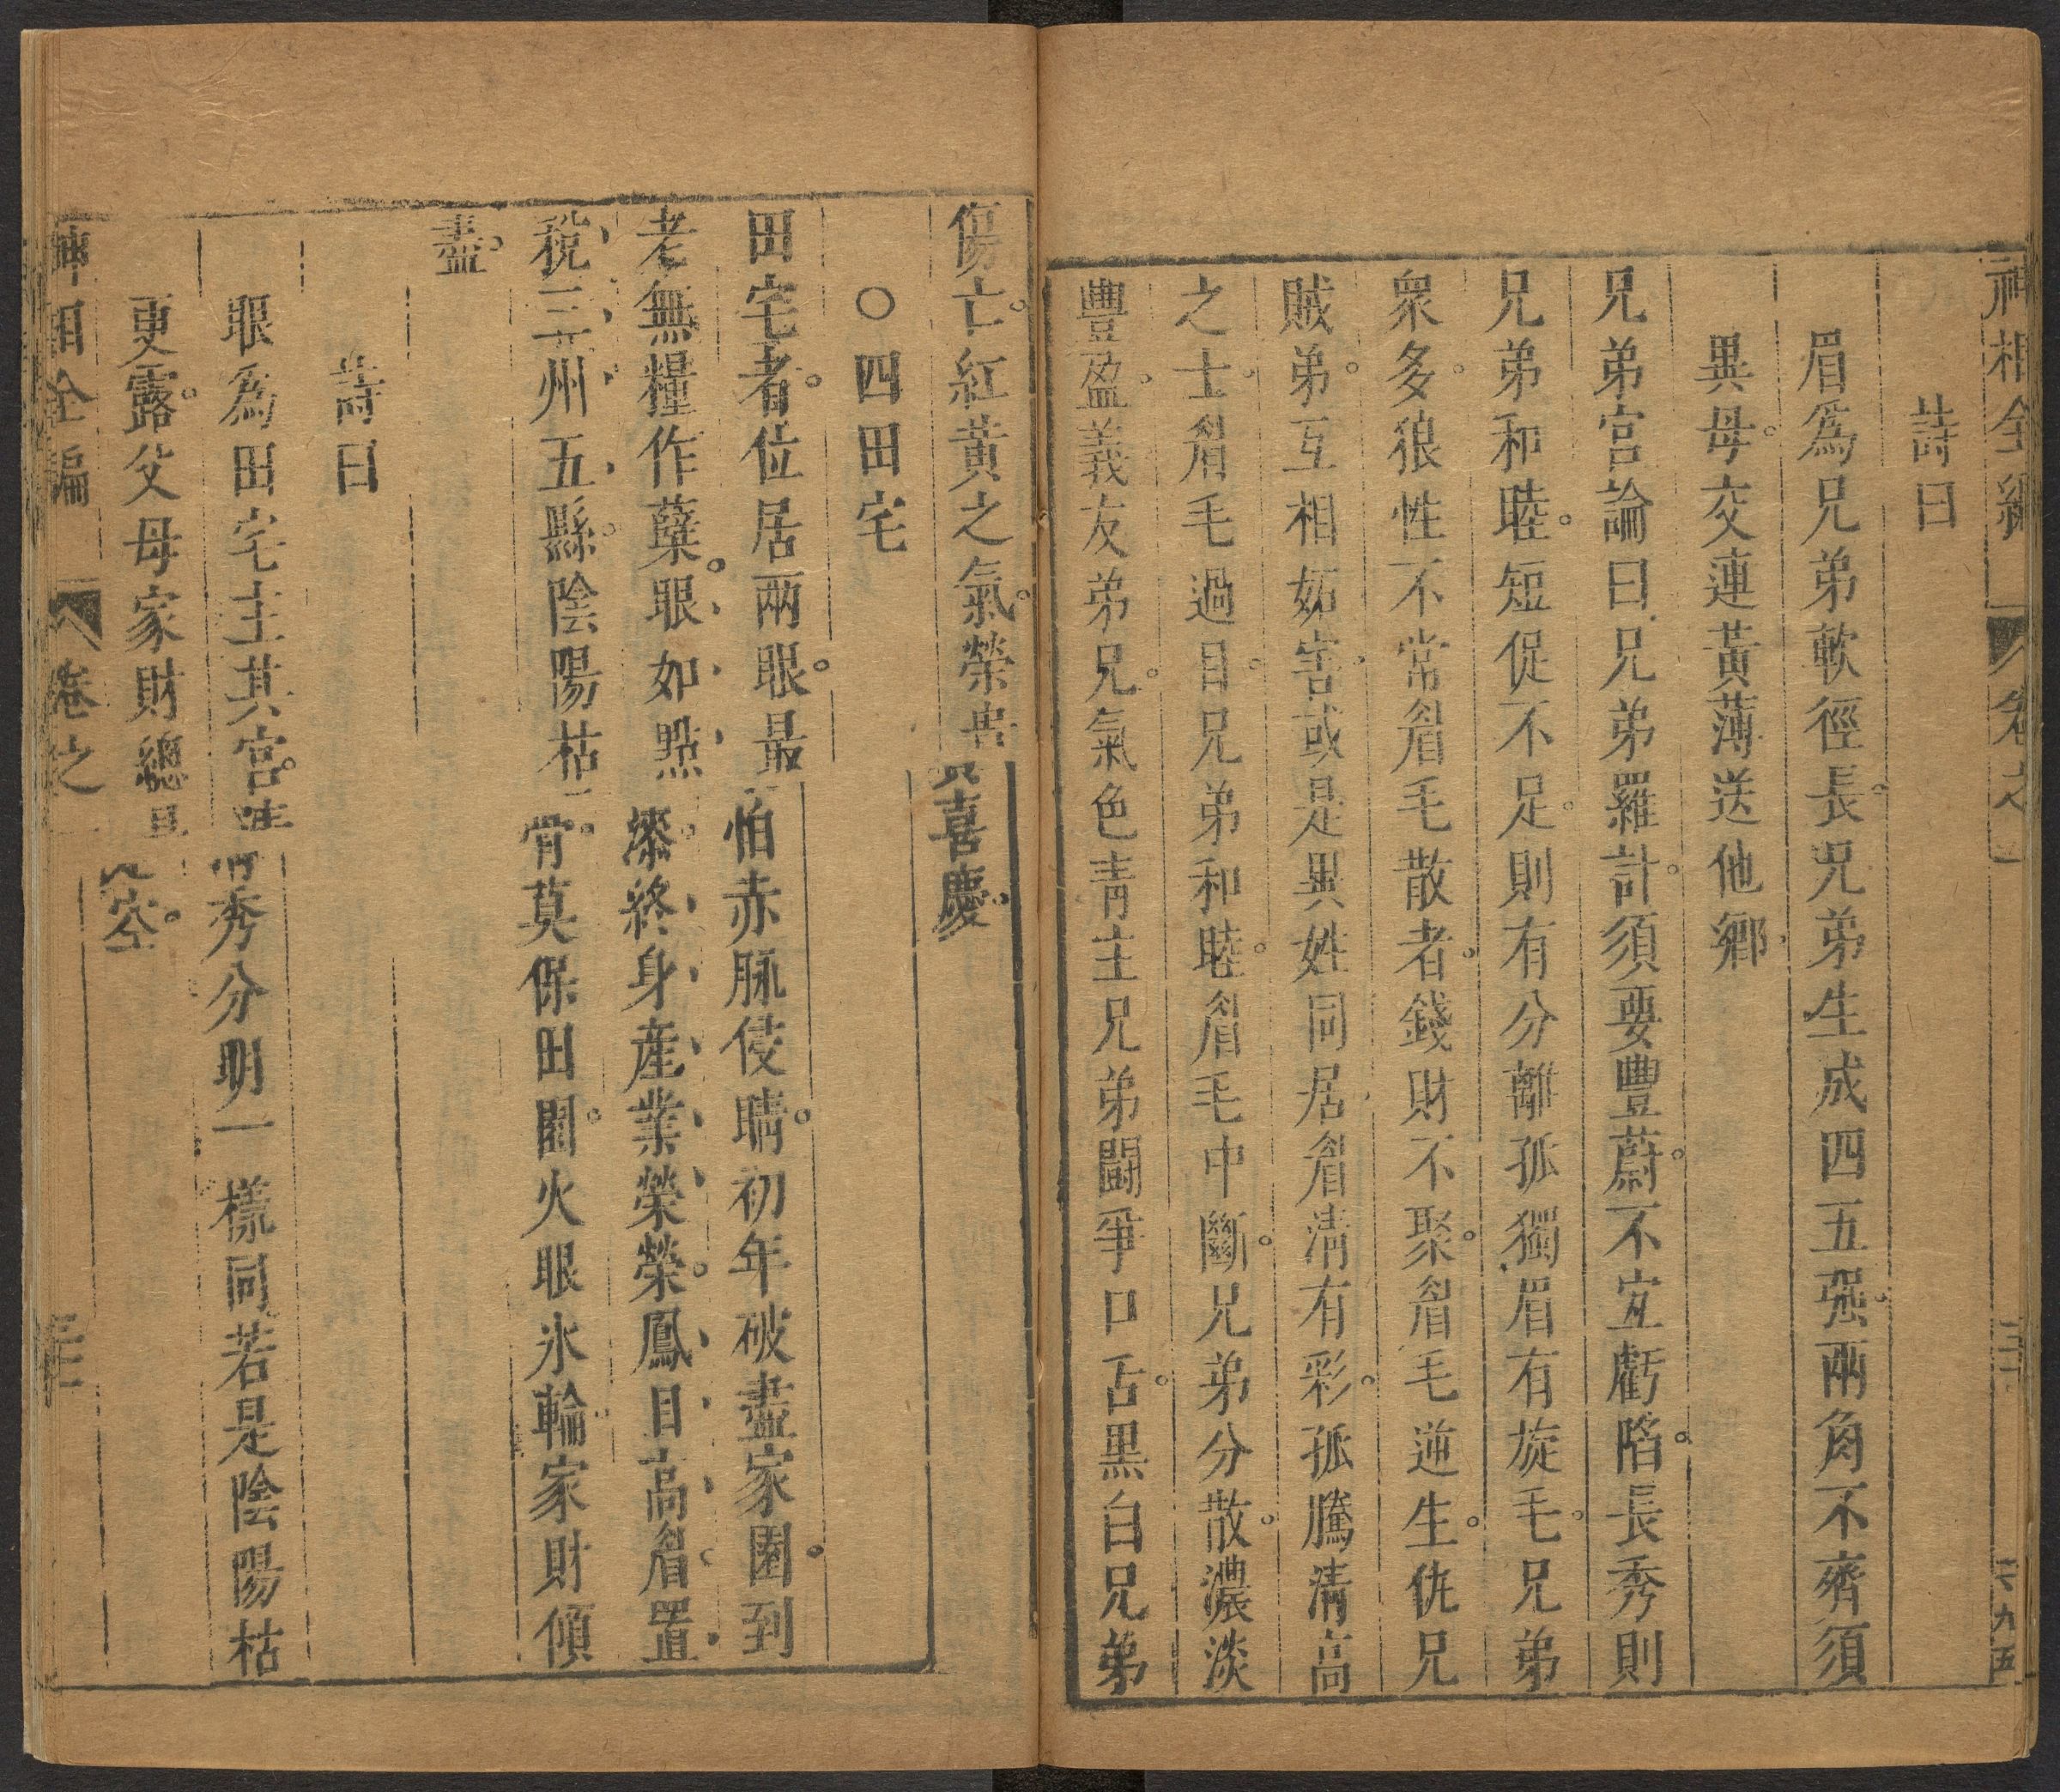 神相全編 卷之一 三十一 六九五
詩曰
眉爲兄弟軟徑長。兄弟生成四五强。兩角不齊須
異母。交連黃薄送他鄉。
兄弟宮論曰兄弟羅計。須要豐蔚。不宜虧陷。長秀則
兄弟和睦。短促不足。則有分離孤獨。眉有旋毛。兄弟
衆多。狼性不常。眉毛散者。錢財不聚。眉毛逆生。仇兄
賊弟。互相妬害。或是異姓同居。眉清有彩。孤騰清高
之士。眉毛過目。兄弟和睦。眉毛中斷。兄弟分散。濃淡
豐盈。義友弟兄。氣色靑主兄弟鬪爭口舌。黑白兄弟
傷亡。紅黃之氣。榮貴喜慶。
○四田宅
田宅者。位居兩眼。最怕赤脉侵睛。初年破盡家園。到
老無糧作蘖。眼如點漆。終身産業榮榮。鳳目高眉。置
稅三州五縣。陰陽枯骨。莫保田園。火眼氷輪。家財傾
盡。
詩曰
眼為田宅主其宮。清秀分明一樣同。若是陰陽枯
更露。父母家財總是空。
神相全編 卷之